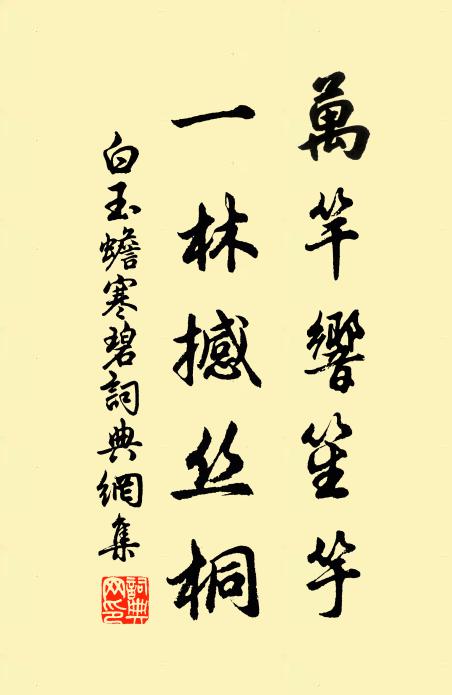 萬竿響笙竽
一林撼丝桐
白玉蟾寒碧詞典網集
詞典网印